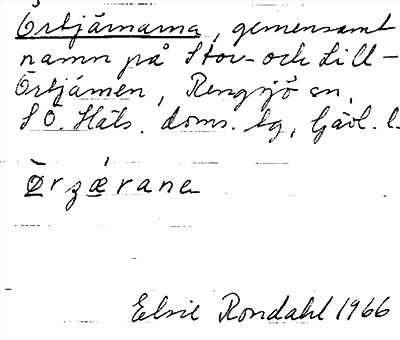 Örtjärnarna, gemensamt
namn på Stor- och Lill-
Örtjärnen, Rengsjö sn,
SÖ. Häls. doms. lg, Gävl. l.
Ørzærane
Elsie Rondahl 1966